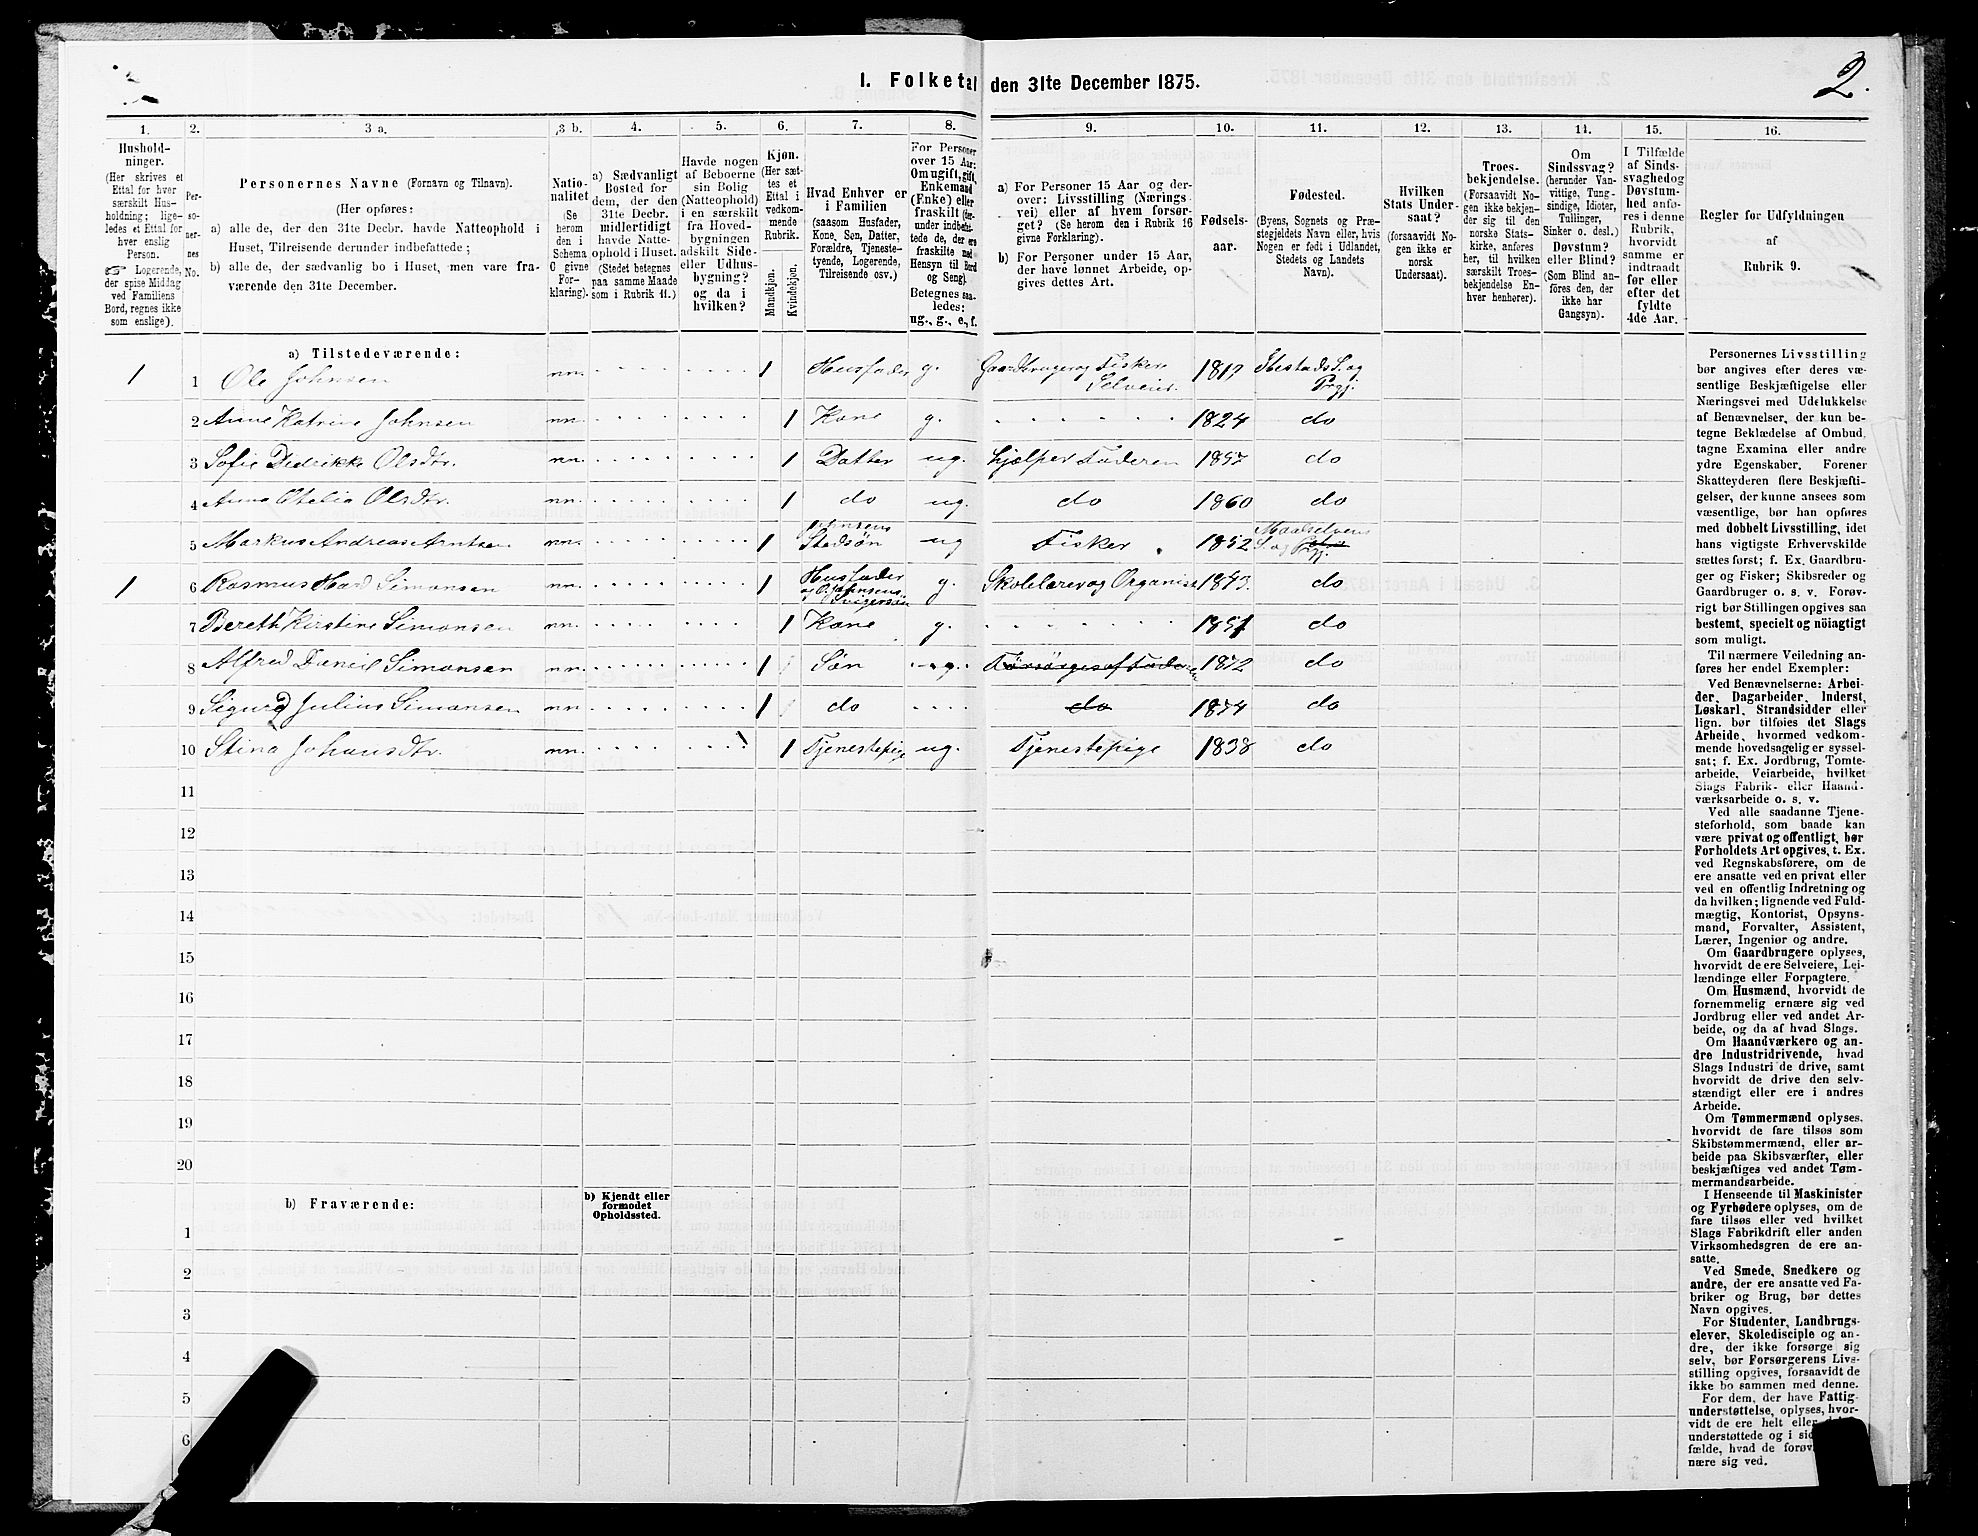 1. Folketal den 31te December 1875.
2.
1.
Hushold-
ninger.
(Her skrives et
Ettal for hver
særskilt Hus-
holdning; lige-
ledes et Ettal for
hver enslig
Person.
☞ Logerende,
der spise Middag
ved Familiens
Bord, regnes ikke
som enslige).
2.
Per-
so-
ner-
nes
No.
3 a.
Personernes Navne (Fornavn og Tilnavn).
(Her opføres:
a) alle de, der den 31te Decbr. havde Natteophold i
Huset, Tilreisende derunder indbefattede;
b) alle de, der sædvanlig bo i Huset, men vare fra-
værende den 31te December.
3 b.
Natio-
nalitet
(Se
herom
den i
Schema
C givne
For-
klaring).
4.
a) Sædvanligt
Bosted for
dem, der den
31te Decbr.
midlertidigt
havde Natte-
ophold i Huset.
(Stedet betegnes
paa samme Maade
som i Rubrik 11.)
5.
Havde nogen
af Beboerne
sin Bolig
(Natteophold)
i en særskilt
fra Hoved-
bygningen
adskilt Side-
eller Udhus-
bygning?
og da i
hvilken?
6.
Kjøn.
(Her sæt-
tes et
Ettal i
vedkom-
mende
Rubrik.
Mandkjøn.
Kvindekjøn.
7.
Hvad Enhver er
i Familien
(saasom Husfader,
Kone, Søn, Datter,
Forældre, Tjeneste-
tyende, Logerende,
Tilreisende osv.)
8.
For Personer
over 15 Aar:
Om ugift, gift,
Enkemand
(Enke) eller
fraskilt (der-
under indbefat-
tede de, der ere
fraskilte med
Hensyn til Bord
og Seng).
Betegnes saa-
ledes:
ug., g., e., f.
9.
a) For Personer 15 Aar og der-
over: Livsstilling (Nærings-
vei) eller af hvem forsør-
get? (Se herom den i Rubrik 16
givne Forklaring).
b) For Personer under 15 Aar,
der have lønnet Arbeide, op-
gives dettes Art.
10.
Fødsels-
aar.
11.
Fødested.
(Byens, Sognets og Præ-
stegjeldets Navn eller, hvis
Nogen er født i Udlandet,
Stedets og Landets
Navn).
12.
Hvilken
Stats Under-
saat?
(forsaavidt No-
gen ikke er
norsk
Undersaat).
13.
Troes-
bekjendelse.
(Forsaavidt No-
gen ikke bekjen-
der sig til den
norske Stats-
kirke, anføres
her, til hvilken
særskilt Troes-
bekjendelse En-
hver henhører).
14.
Om
Sindssvag?
(herunder Van-
vittige, Tung-
sindige, Idioter,
Tullinger,
Sinker o. desl.)
Døvstum?
eller Blind?
(Som Blind an-
føres den, der
ikke har
Gangsyn).
15.
I Tilfælde
af Sinds-
svaghed og
Døvstum-
hed anfø-
res i denne
Rubrik,
hvorvidt
samme er
indtraadt
før eller
efter det
fyldte
4de Aar.
16.
Regler for Udfyldningen
af
Rubrik 9.
a) Tilstedeværende:
1 1 Ole Johnsen nn. 1 Husfader g. Gaardbruger og Fisker Selveier. 1817 Ibestads S. og Prgj.
2 Anne Katrine Johnsen nn. 1 Kone g. 1824 do
3 Sofie Didrikke Olsdtr. nn. 1 Datter ug. hjælper Faderen 1857 do
4 Anna Otelia Olsdtr. nn. 1 do ug. do 1860 do
5 Markus Andreas Arntsen nn. 1 Johnsens Stedsøn ug Fisker 1852 Maalselvens S. og Prgj.
1 6 Rasmus Hard Simonsen nn. 1 Husfader og O. Johnsens Svigersøn g. Skolelærer og Organist 1843. do
7 Bereth Kirstine Simonsen nn. 1 Kone g. 1851 do
8 Alfred Daniel Simonsen nn. 1 Søn Forsørges af Faderen 1872 do
9 Sigurd Julius Simonsen nn. 1 do do 1874 do
10 Stina Johansdtr. nn. 1 Tjenestepige ug. Tjenestepige 1838 do
11
12
13
14
15
16
17
18
19
20
b) Fraværende:
b) Kjendt eller
formodet
Opholdssted.
1
2
3
4
5
6
Personernes Livsstilling
bør angives efter deres væ-
sentlige Beskjæftigelse eller
Næringsvei med Udelukkelse
af Benævnelser, der kun be-
tegne Beklædelse af Ombud,
tagne Examina eller andre
ydre Egenskaber. Forener
Skatteyderen flere Beskjæfti-
gelser, der kunne ansees som
væsentlige, bør han opføres
med dobbelt Livsstilling, idet
hans vigtigste Erhvervskilde
sættes først; f. Ex. Gaardbru-
ger og Fisker; Skibsreder og
Gaardbruger o. s. v. Forøv-
rigt bør Stillingen opgives saa
bestemt, specielt og nöiagtigt
som muligt.
Til nærmere Veiledning an-
føres her endel Exempler:
Ved Benævnelserne: Arbei-
der, Dagarbeider, Inderst,
Løskarl, Strandsidder eller
lign. bør tilføies det Slags
Arbeide, hvormed vedkom-
mende hovedsagelig er syssel-
sat; f. Ex. Jordbrug, Tomte-
arbeide, Veiarbeide, hvilket
Slags Fabrik- eller Haand-
værksarbeide o. s. v.
Ved alle saadanne Tjene-
steforhold, som baade kan
være privat og offentligt, bør
Forholdets Art opgives, t. Ex.
ved Regnskabsførere, om de
ere ansatte ved en privat eller
ved en offentlig Indretning og
da hvilken; lignende ved Fuld-
mægtig, Kontorist, Opsyns-
mand, Forvalter, Assistent,
Lærer, Ingeniør og andre.
Om Gaardbrugere oplyses,
hvorvidt de ere Selveiere, Lei-
lændinge eller Forpagtere.
Om Husmænd, hvorvidt de
fornemmelig ernære sig ved
Jordbrug eller ved andet Ar-
beide, og da af hvad Slags.
Om Haandværkere og an-
dre Industridrivende, hvad
Slags Industri de drive, samt
hvorvidt de drive den selv-
stændigt eller ere i andres
Arbeide.
Om Tømmermænd oplyses,
hvorvidt de fare tilsøs som
Skibstømmermænd, eller ar-
beide paa Skibsværfter, eller
beskjæftiges ved andet Tøm-
mermandsarbeide.
I Henseende til Maskinister
og Fyrbødere oplyses, om de
fare tilsøs eller ved hvilket
Slags Fabrikdrift eller anden
Virksomhedsgren de ere an-
satte.
Ved Smede, Snedkere og
andre, der ere ansatte ved Fa-
briker og Brug, bør dettes
Navn opgives.
For Studenter, Landbrugs-
elever, Skoledisciple og an-
dre, der ikke forsørge sig
selv, bør Forsørgerens Livs-
stilling opgives, forsaavidt de
ikke bo sammen med denne.
For dem, der have Fattig-
understøttelse, oplyses, hvor-
vidt de ere helt eller
understøttede og i
fælde, hvad de
nære sig ved.